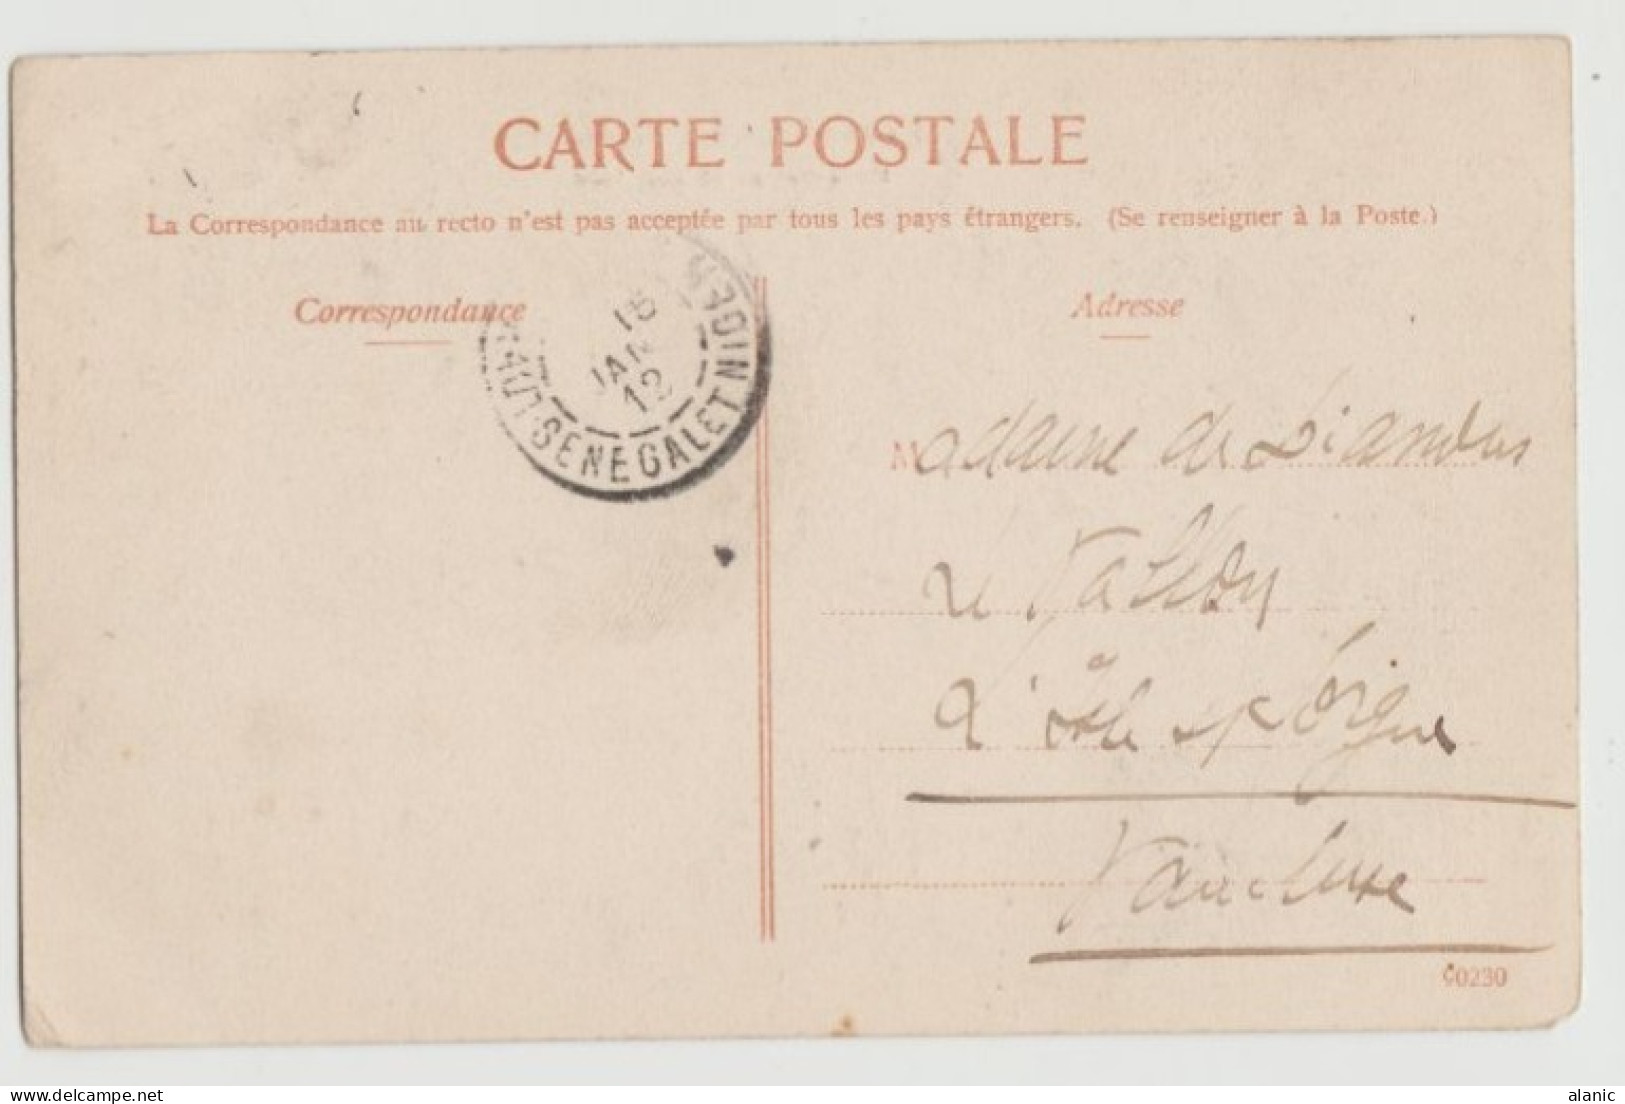 CARTE POSTALE
La Correspondance au recto n'est pas acceptée par tous les pays étrangers. (Se renseigner à la Poste.)
Correspondance
Adresse
HAUT-SENEGAL ET NIGER
16
JAN
12
Madame de
Le Vallon
L'Isle sur Sorgue
Vaucluse
90230
alanic
www.delcampe.net